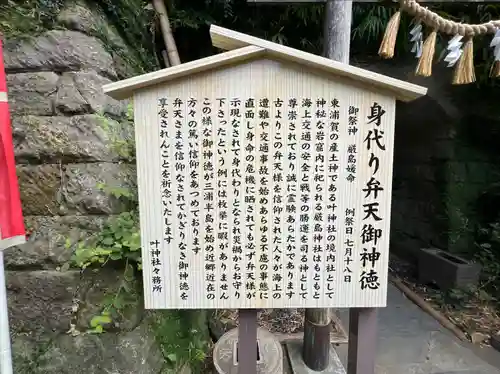 身代り弁天御神徳
御祭神　厳島媛命　例祭日　七月十八日
東浦賀の産土神である叶神社の境内社として
神秘な岩窟内に祀られる厳島神社はもともと
海上交通の安全と戦等の勝運を司る神として
尊崇されており誠に霊験あらたかであります
古よりこの弁天様を信仰された人々が海上の
遭難や交通事故を始めあらゆる不慮の事態に
直面し身命の危機に晒されても必ず弁天様が
示現なされて身代わりとなられ災禍からお守り
下さったという例には枚挙に暇がありません
この様な御神徳が三浦半島を始め近郷近在の
方々の篤い信仰をあつめており
弁天さまを信仰なされてかぎりなき御神徳を
享受されんことを祈念いたします
叶神社社務所